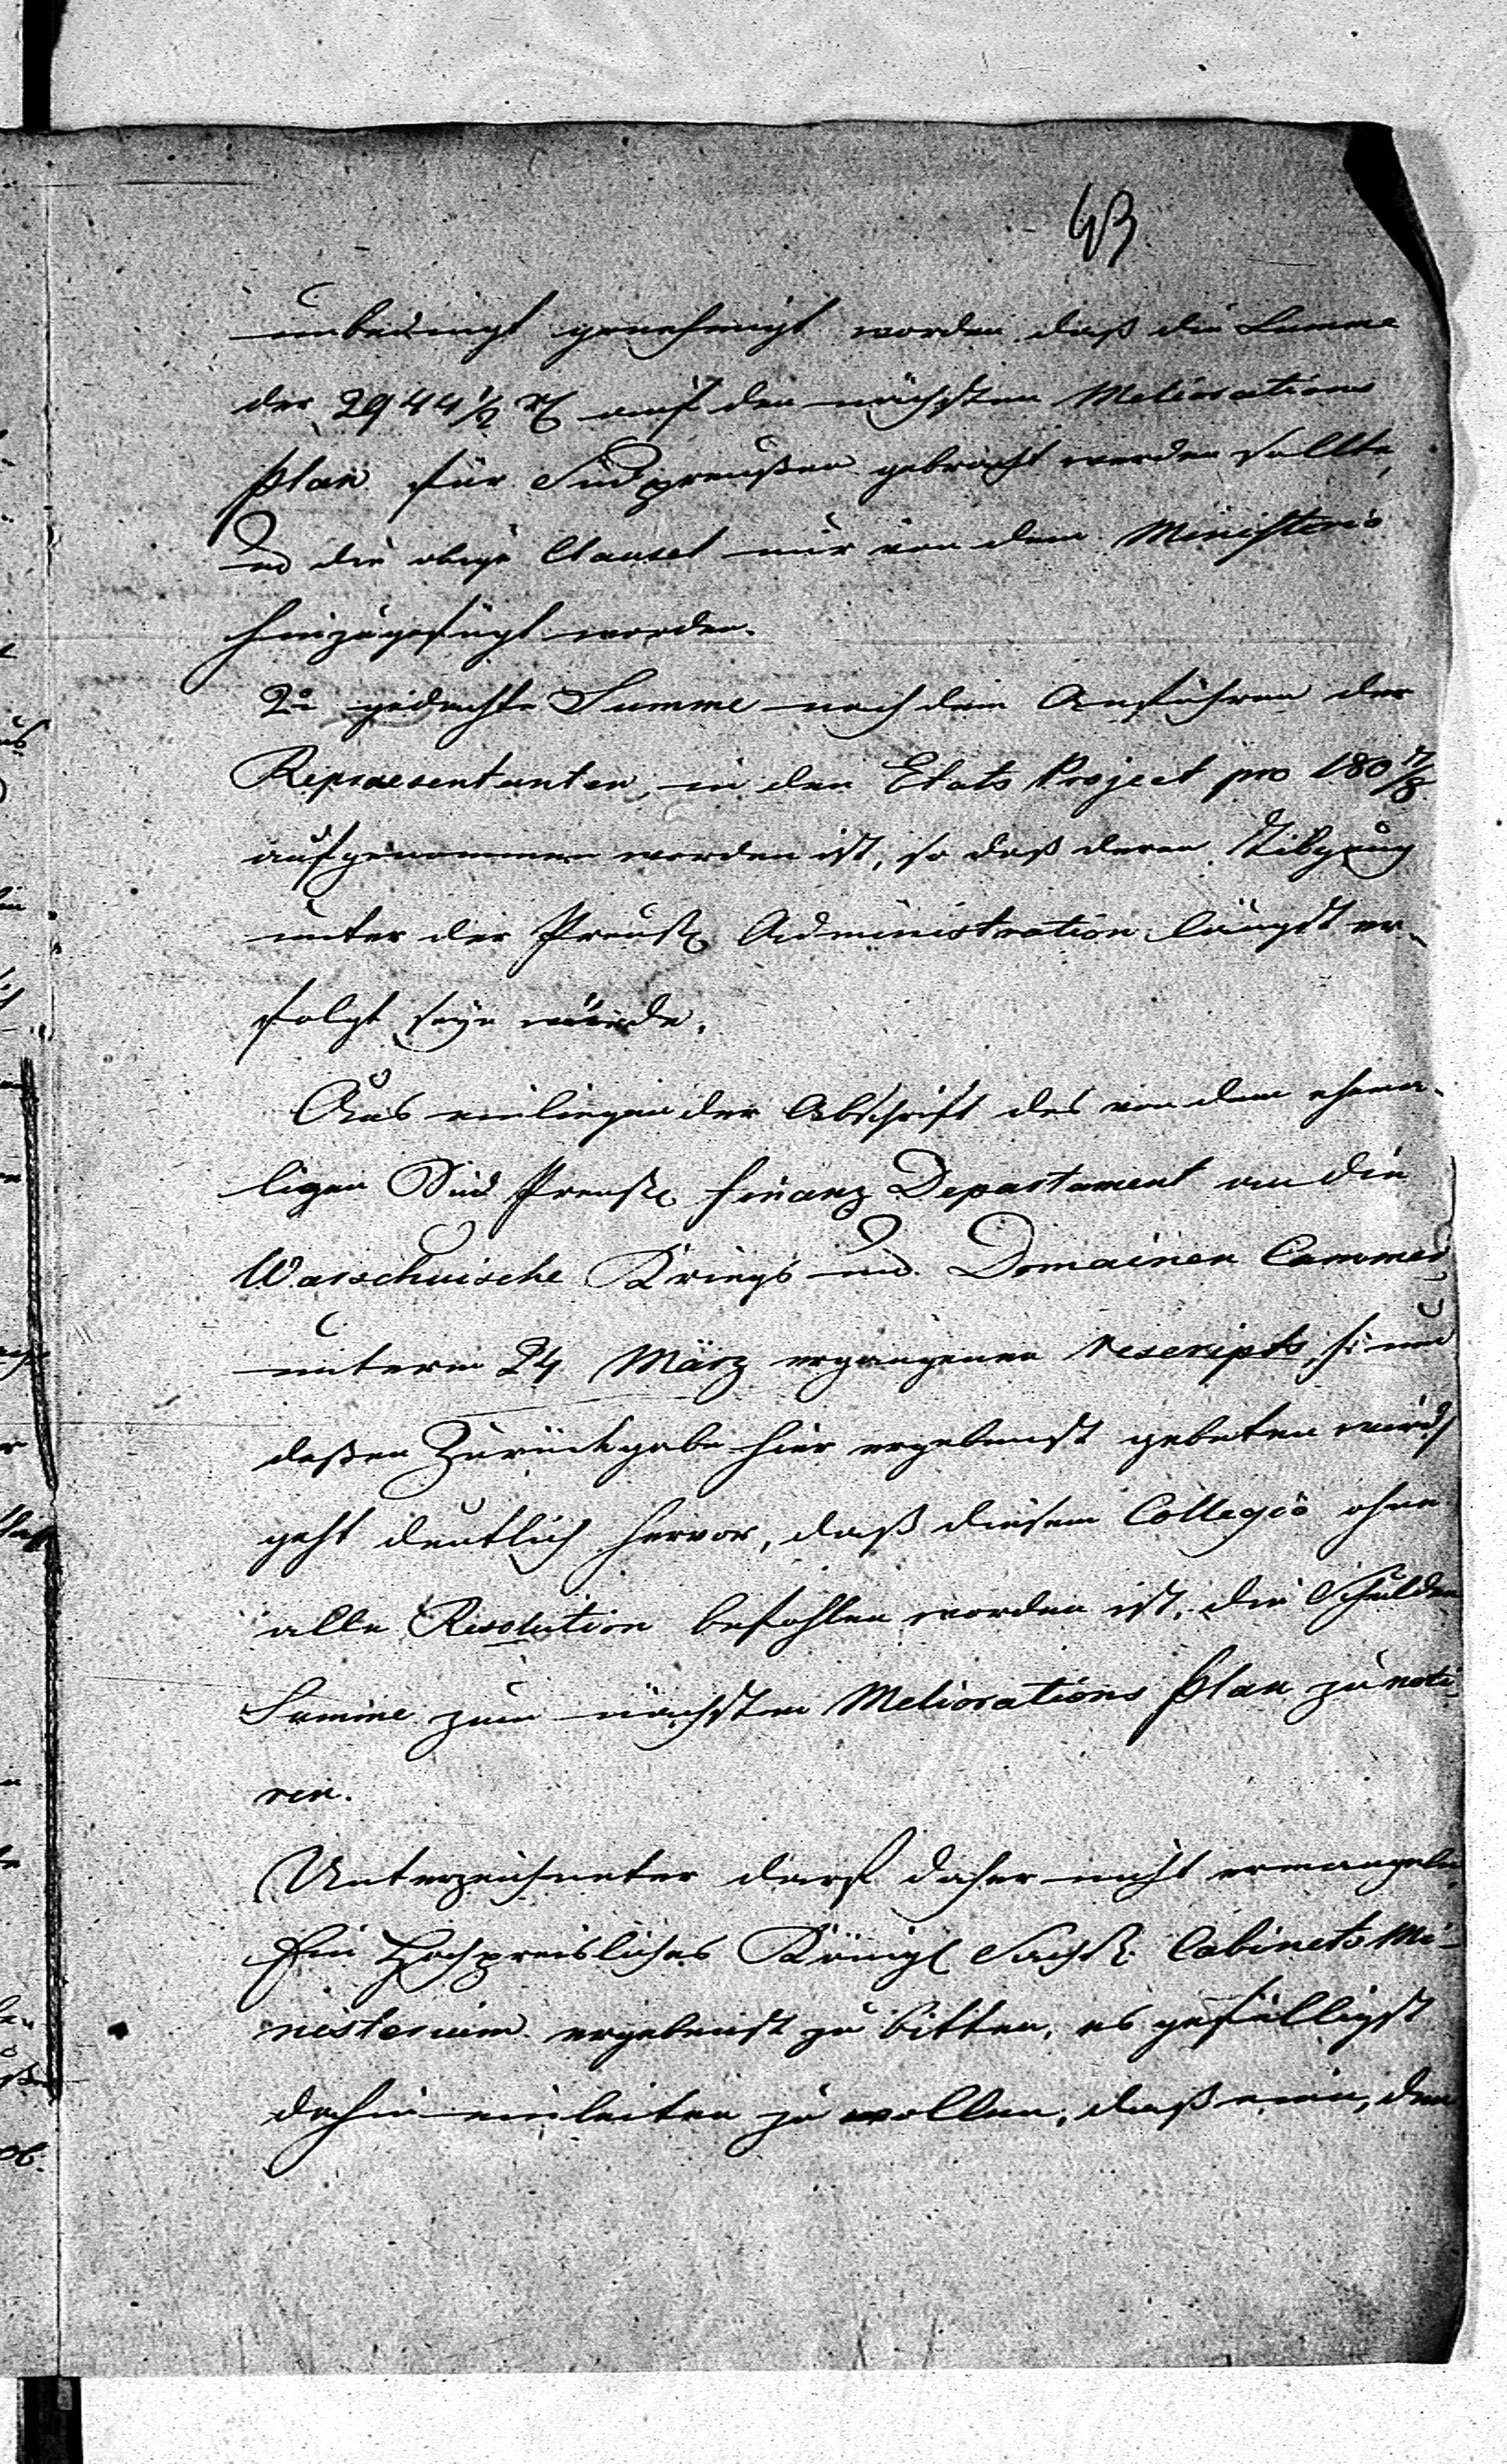 43
unbedingt genehmigt worden, daß die Summe
der 2944½ rℓ auf den nächsten Meliorations
Plan für Südpreußen gebracht werden sollte,
und die obige Clausel nur von dem Ministerio
hinzugefügt worden.
2o gedachte Summe nach dem Anführen der
Repraesentanten, in den Etats Project pro 180 7/8
aufgenommen worden ist, so daß deren Tilgung
unter der Preuß Administration längst er-
folgt seyn würde.
Aus einliegender Abschrift des von dem ehema-
ligen Süd Preuß Finanz Departement an die
Warschauische Kriegs und Domainen Cammer
unterm 24 März ergangenen Rescripts, /: um
deßen Zurückgabe hier ergebenst gebeten wird :/
geht deutlich hervor, daß diesem Collegio ohne
alle Resolution befohlen worden ist, die Schulden
Summe zum nächsten Meliorations Plan zu noti-
ren.
Unterzeichneter darf daher nicht ermangeln,
Ein Hochpreisliches Königl Sächß. Cabinets Mi-
nisterium ergebenst zu bitten, es gefälligst
dahin einleiten zu wollen, daß ein, den